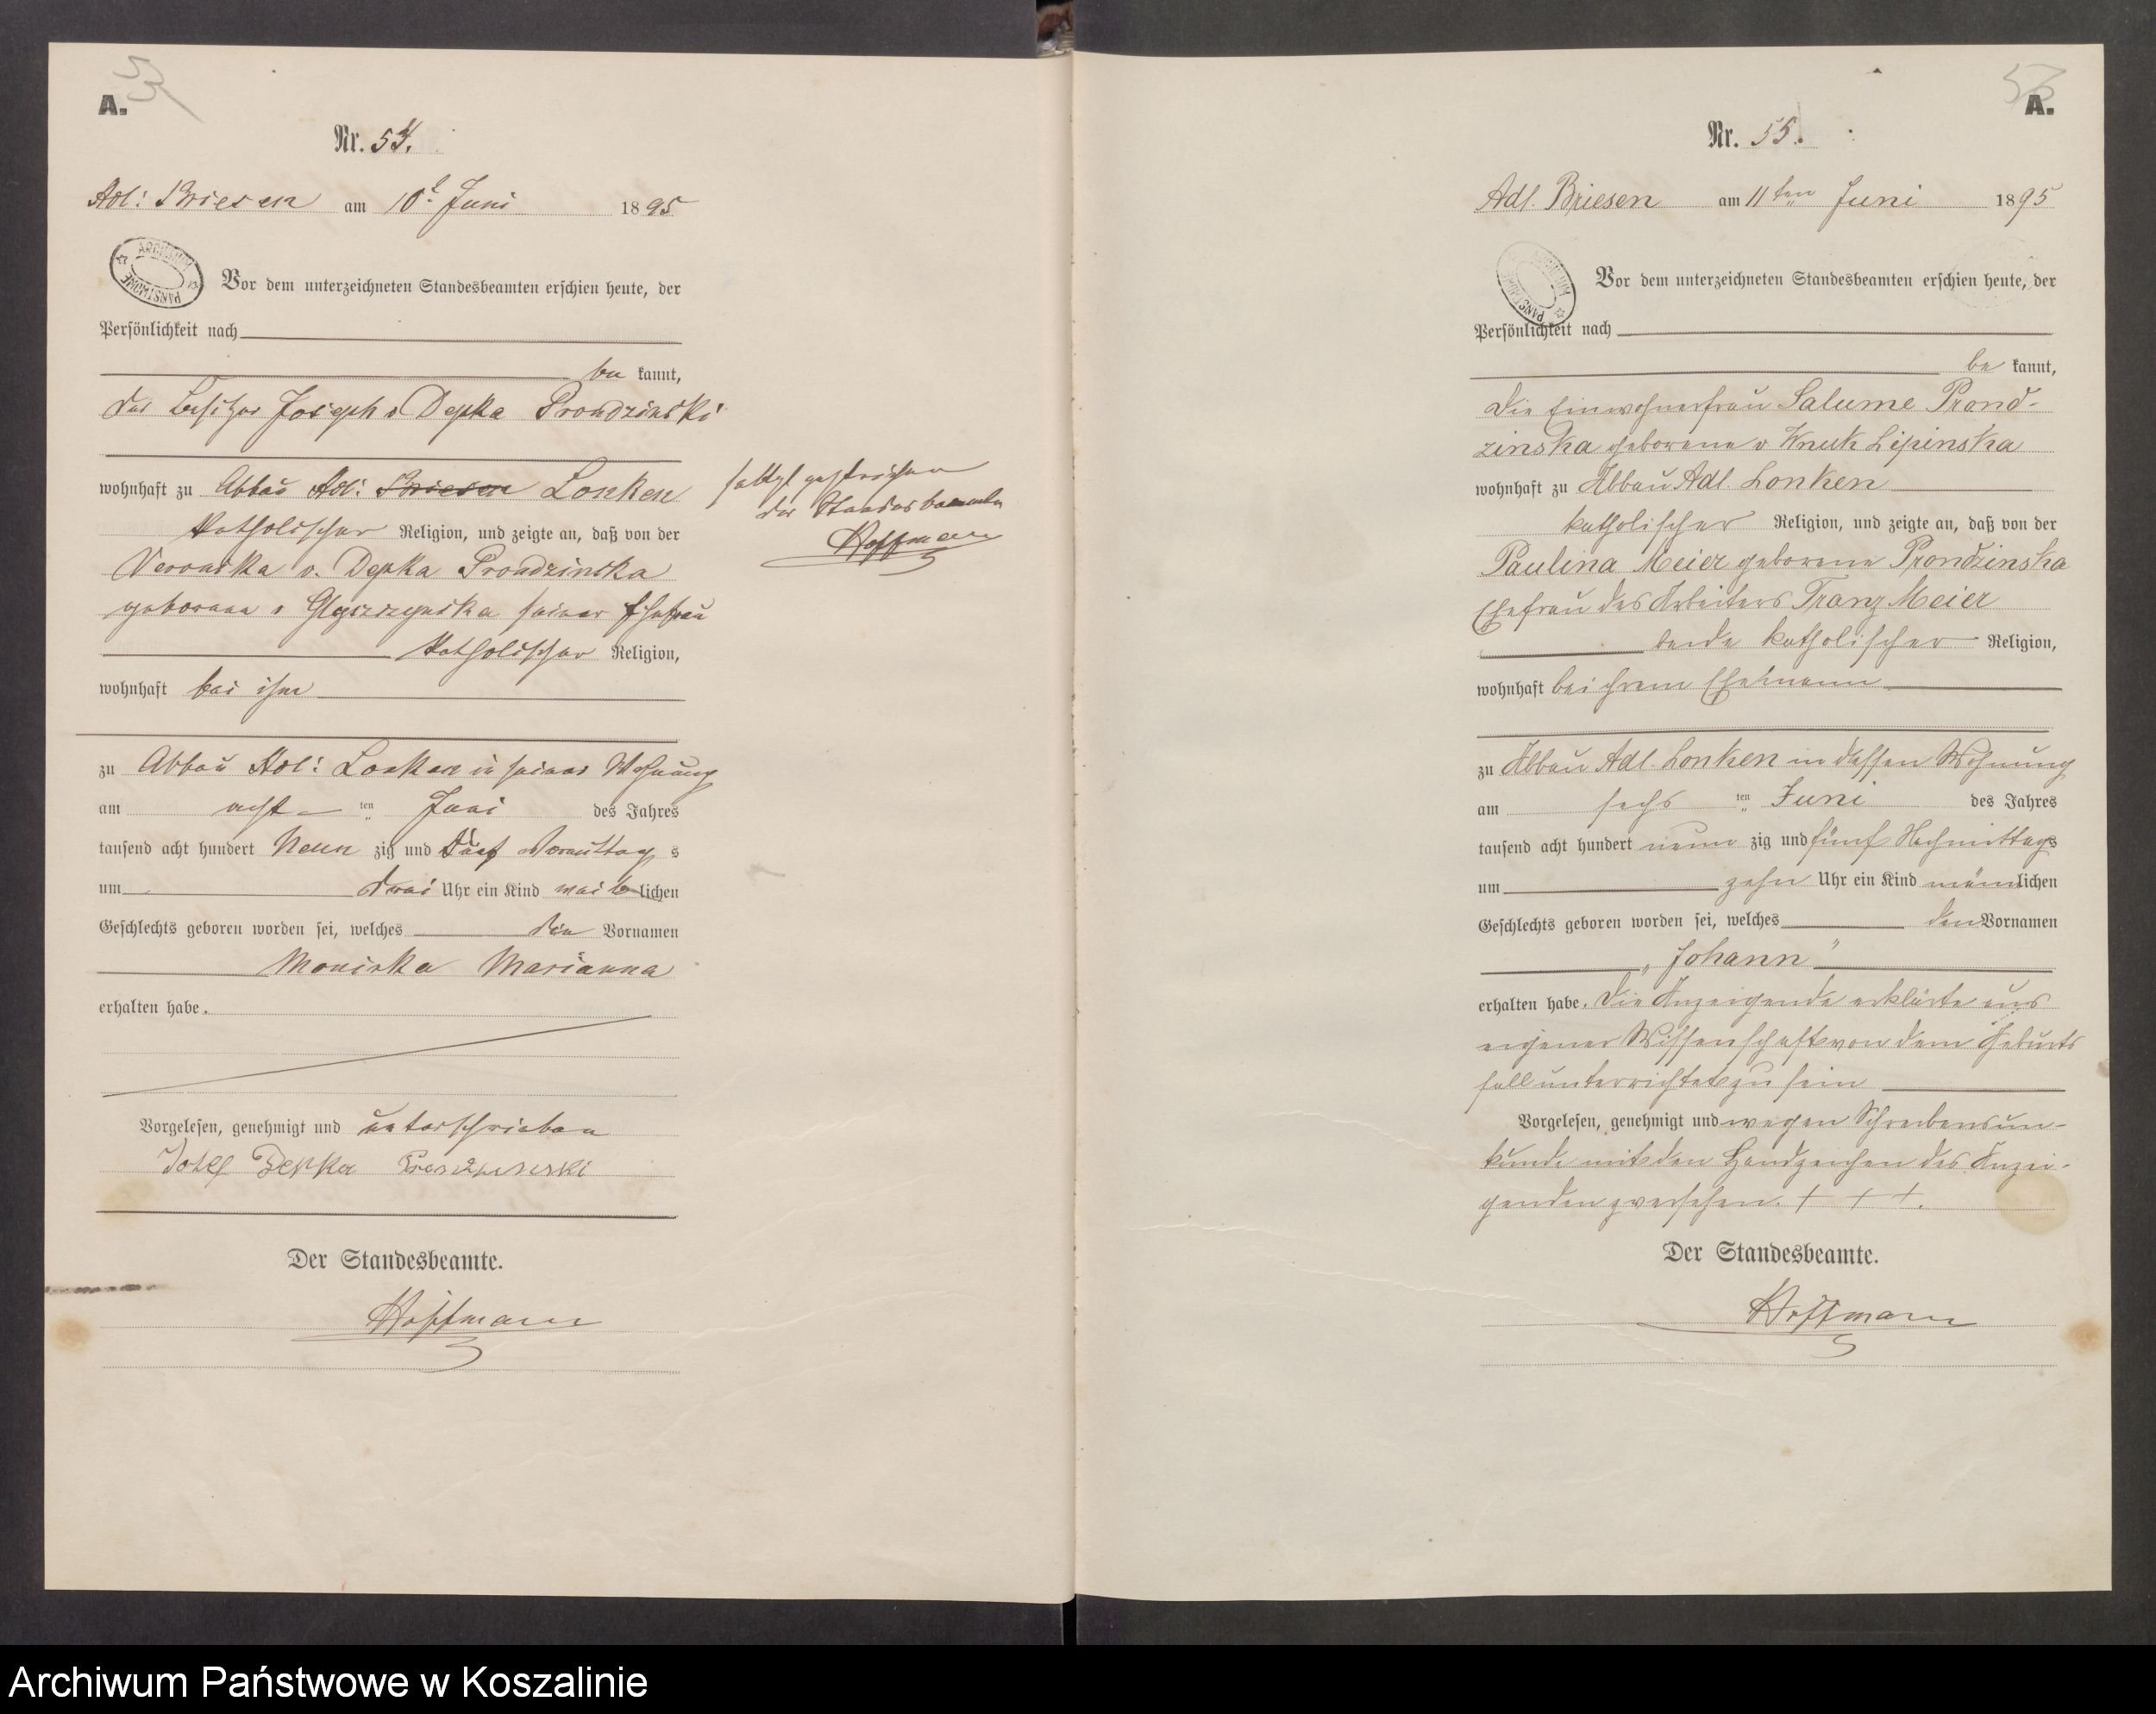 A.
Nr. 54.
Adl: Briesen am 10t Juni 1895
ARCHIWUM PAŃSTWOWE
Vor dem unterzeichneten Standesbeamten erschien heute, der
Persönlichkeit nach
be kannt,
der Besitzer Joseph v Depka Prondzinski
wohnhaft zu Abbau Adl: Briesen Lonken
katholischer Religion, und zeigte an, daß von der
Veronika v. Depka Prondzinska
geborene v seiner Ehefrau
katholischer Religion,
wohnhaft bei ihm
zu Abbau Adl: Lonken in seiner Wohnung
am acht ten Juni des Jahres
tausend acht hundert Neun zig und Fünf Vormittag s
um drei Uhr ein Kind weib lichen
Geschlechts geboren worden sei, welches die Vornamen
Monika Marianna
erhalten habe.
Vorgelesen, genehmigt und unterschrieben
Josef Depka
Der Standesbeamte.
Hoffmann
gestrichen
der Standesbeamte
Hoffmann
A.
Nr. 55.
Adl. Briesen am 11ten Juni 1895
ARCHIWUM PAŃSTWOWE
Vor dem unterzeichneten Standesbeamten erschien heute, der
Persönlichkeit nach
be kannt,
die Einwohnerfrau Salume Prond-
zinska geborene v Knuth Lipinska
wohnhaft zu Abbau Adl. Lonken
katholischer Religion, und zeigte an, daß von der
Paulina Meier geborene Prondzinska
Ehefrau des Arbeiters Franz Meier
beide katholischer Religion,
wohnhaft bei ihrem Ehemann
zu Abbau Adl. Lonken in dessen Wohnung
am sechs ten Juni des Jahres
tausend acht hundert neun zig und fünf Nachmittags
um zehn Uhr ein Kind männlichen
Geschlechts geboren worden sei, welches den Vornamen
„Johann“
erhalten habe. Die Anzeigende erklärte aus
eigener Wissenschaft von dem Geburts
fall unterrichtet zu sein
Vorgelesen, genehmigt und wegen Schreibensun-
kunde mit den Handzeichen der Anzei-
genden versehen. + + +.
Der Standesbeamte.
Hoffmann
Archiwum Państwowe w Koszalinie